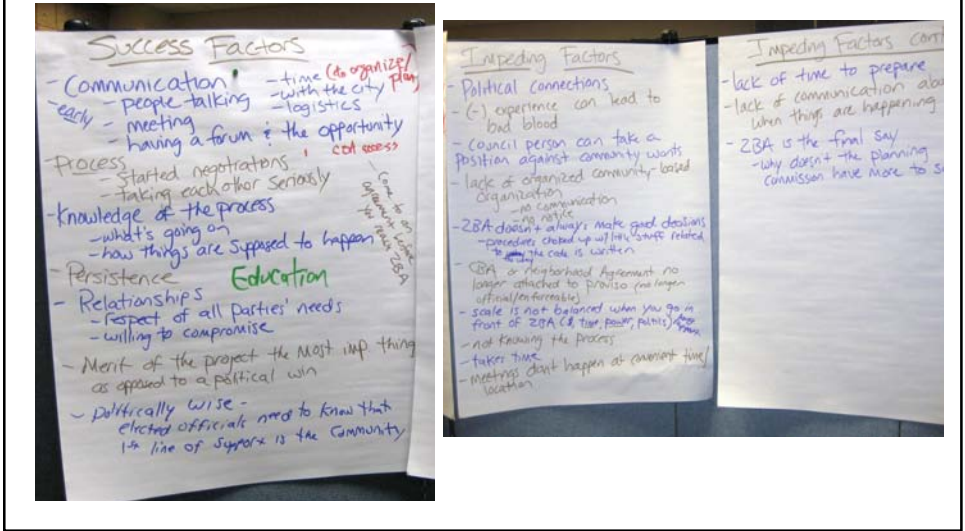 Success Factors
- Communication
- time (to organize/plan)
-early
- people talking
- with the city
- meeting
- logistics
- having a forum & the opportunity
Process
- started negotiations
- taking each other seriously
- come to an agreement before you reach ZBA
-Knowledge of the process
- what's going on
- how things are supposed to happen
- Persistence
Education
- Relationships
- respect of all parties' needs
- willing to compromise
- Merit of the project the most imp thing
as opposed to a political win
- politically wise -
elected officials need to know that
1st line of support is the Community
Impeding Factors
- Political connections
- (-) experience can lead to
bad blood
- council person can take a
position against community wants
- lack of organized community-based
organization
- no communication
- no notice
- ZBA doesn't always make good decisions
- procedures choked up w/ little stuff related
to the code is written
- CBA or neigborhood Agreement no
longer attached to proviso (no longer
official/enforceable)
- scale is not balanced when you go in
front of ZBA ($, time, power, politics)
- not knowing the process
- takes time
- meetings don't happen at convenient time/
location
Impeding Factors cont
- lack of time to prepare
- lack of communication
when things are happening
- ZBA is the final say
- why doesn't the planning
commission have more to